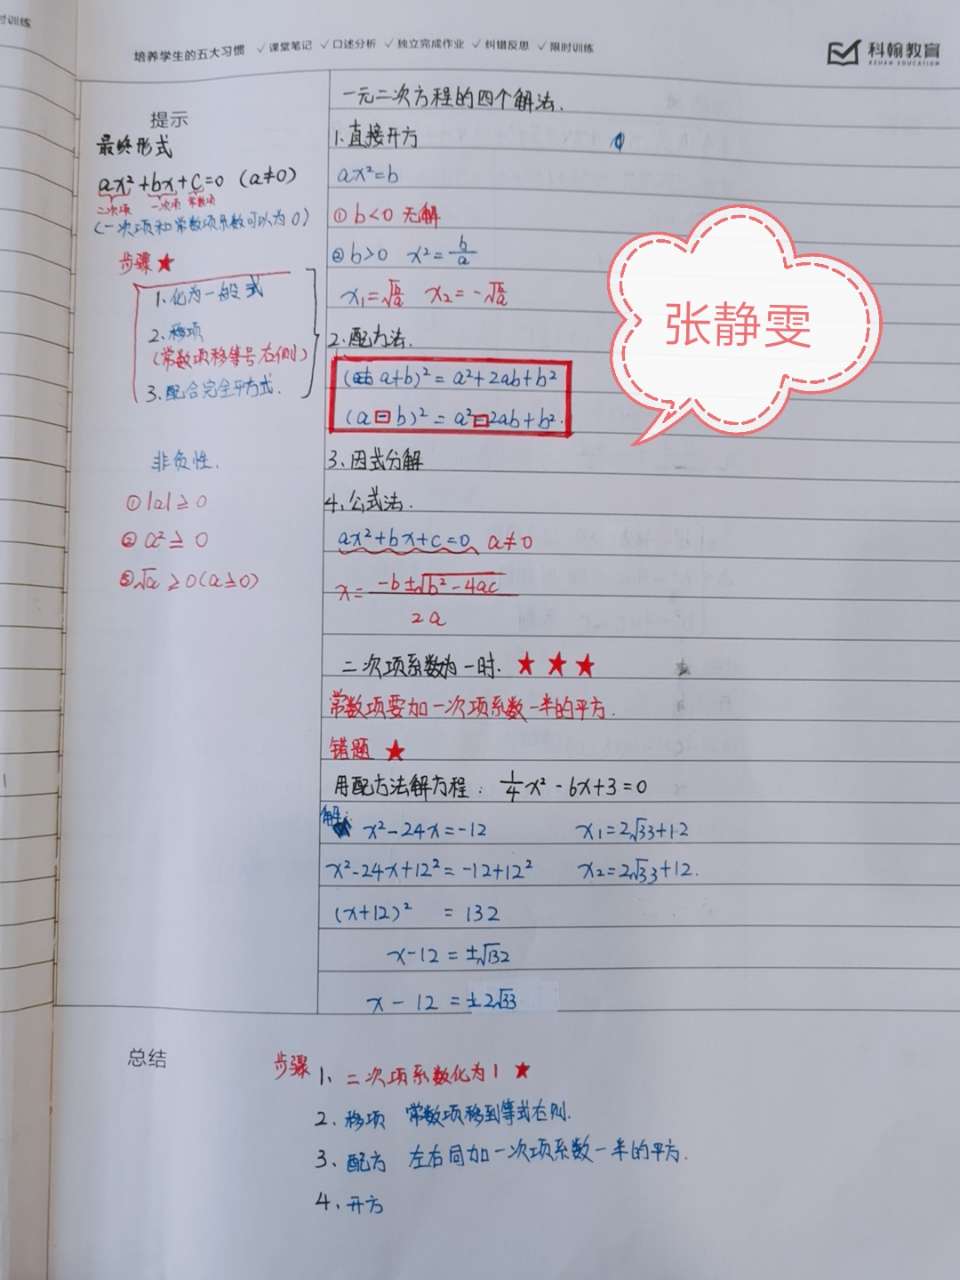 时训练
培养学生的五大习惯 ✓课堂笔记 ✓口述分析 ✓独立完成作业 ✓纠错反思 ✓限时训练
科翰教育
KEHAN EDUCATION
提示
最终形式
ax²+bx+c=0 (a≠0)
二次项 一次项 常数项
(一次项和常数项系数可以为0)
步骤★
1.化为一般式
2.移项
(常数项移等号右侧)
3.配合完全平方式.
非负性.
①|a|≥0
②a²≥0
③√a≥0(a≥0)
一元二次方程的四个解法.
1.直接开方
ax²=b
①b<0 无解
②b>0 x²=b/a
x₁=√b/a x₂=-√b/a
张静雯
2.配方法.
(a+b)²=a²+2ab+b²
(a-b)²=a²-2ab+b².
3.因式分解
4.公式法.
ax²+bx+c=0 a≠0
x=(-b±√b²-4ac)/2a
二次项系数为一时.★★★
常数项要加一次项系数一半的平方.
错题★
用配方法解方程: 1/4x²-6x+3=0
解:
x²-24x=-12 x₁=2√33+12
x²-24x+12²=-12+12² x₂=2√33+12.
(x+12)² =132
x-12=±√132
x-12=±2√33
总结
步骤 1、二次项系数化为1★
2.移项 常数项移到等式右则.
3、配方 左右同加一次项系数一半的平方.
4、开方